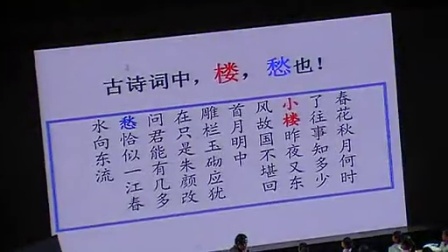 古诗词中，楼，愁也！
春花秋月何时
了往事知多少
小楼昨夜又东
风故国不堪回
首月明中
雕栏玉砌应犹
在只是朱颜改
问君能有几多
愁恰似一江春
水向东流